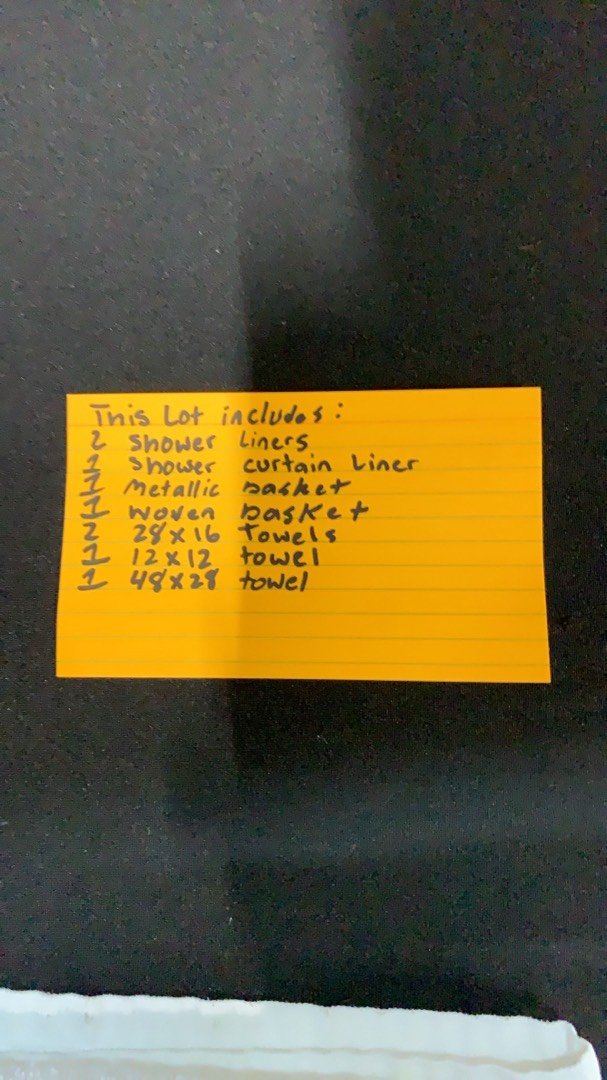 This Lot includes:
2 Shower Liners
1 Shower curtain Liner
1 Metallic basket
1 woven basket
2 28x16 Towels
1 12x12 towel
1 48x28 towel